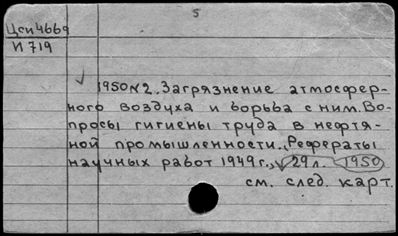 5
Цси4669
И719
1950 №2. Загрязнение атмосфер-
ного воздуха и борьба с ним. Во-
просы гигиены труда в нефтя-
ной промышленности. Рефераты
научных работ 1949 г., 29 л. 1950
см. след. карт.